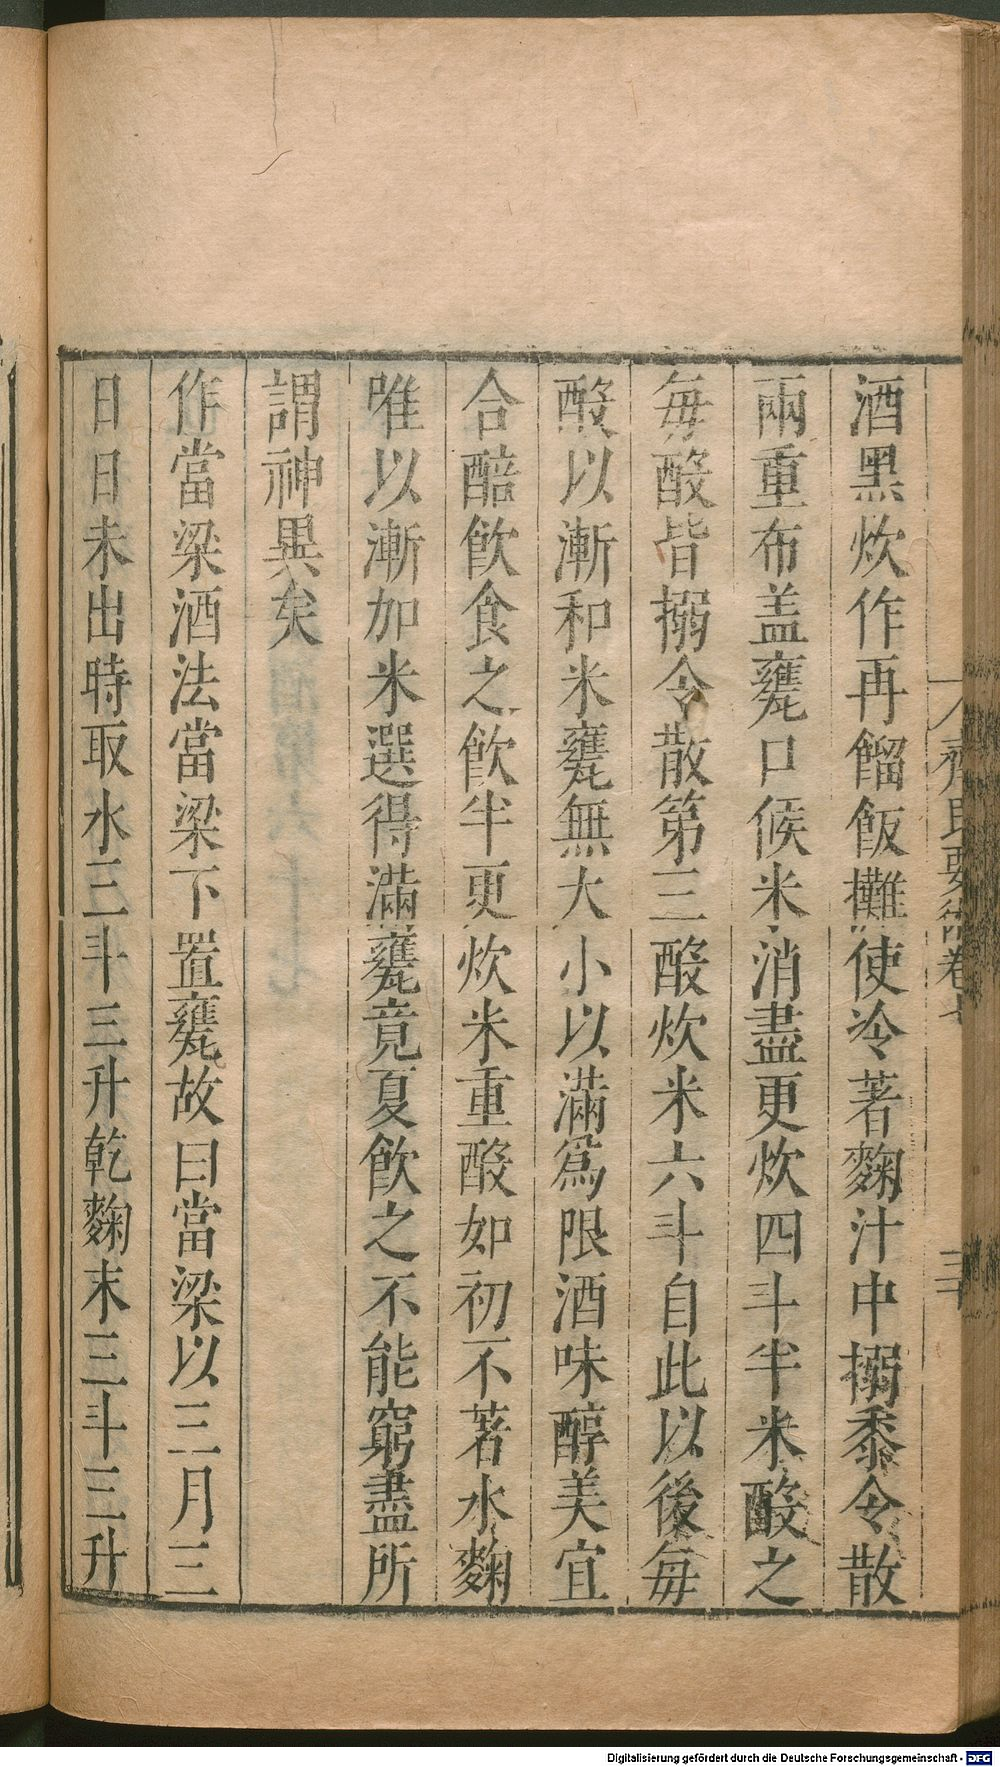 齊民要術卷七
三十
酒黑炊作再餾飯攤使冷著麴汁中搦黍令散
兩重布盖甕口候米消盡更炊四斗半米酘之
每酘皆搦令散第三酘炊米六斗自此以後每
酘以漸和米甕無大小以滿爲限酒味醇美宜
合醅飮食之飮半更炊米重酘如初不著水麴
唯以漸加米還得滿甕竟夏飮之不能窮盡所
謂神異矣
作當梁酒法當梁下置甕故曰當梁以三月三
日日未出時取水三斗三升乾麴末三斗三升
Digitalisierung gefördert durch die Deutsche Forschungsgemeinschaft - DFG